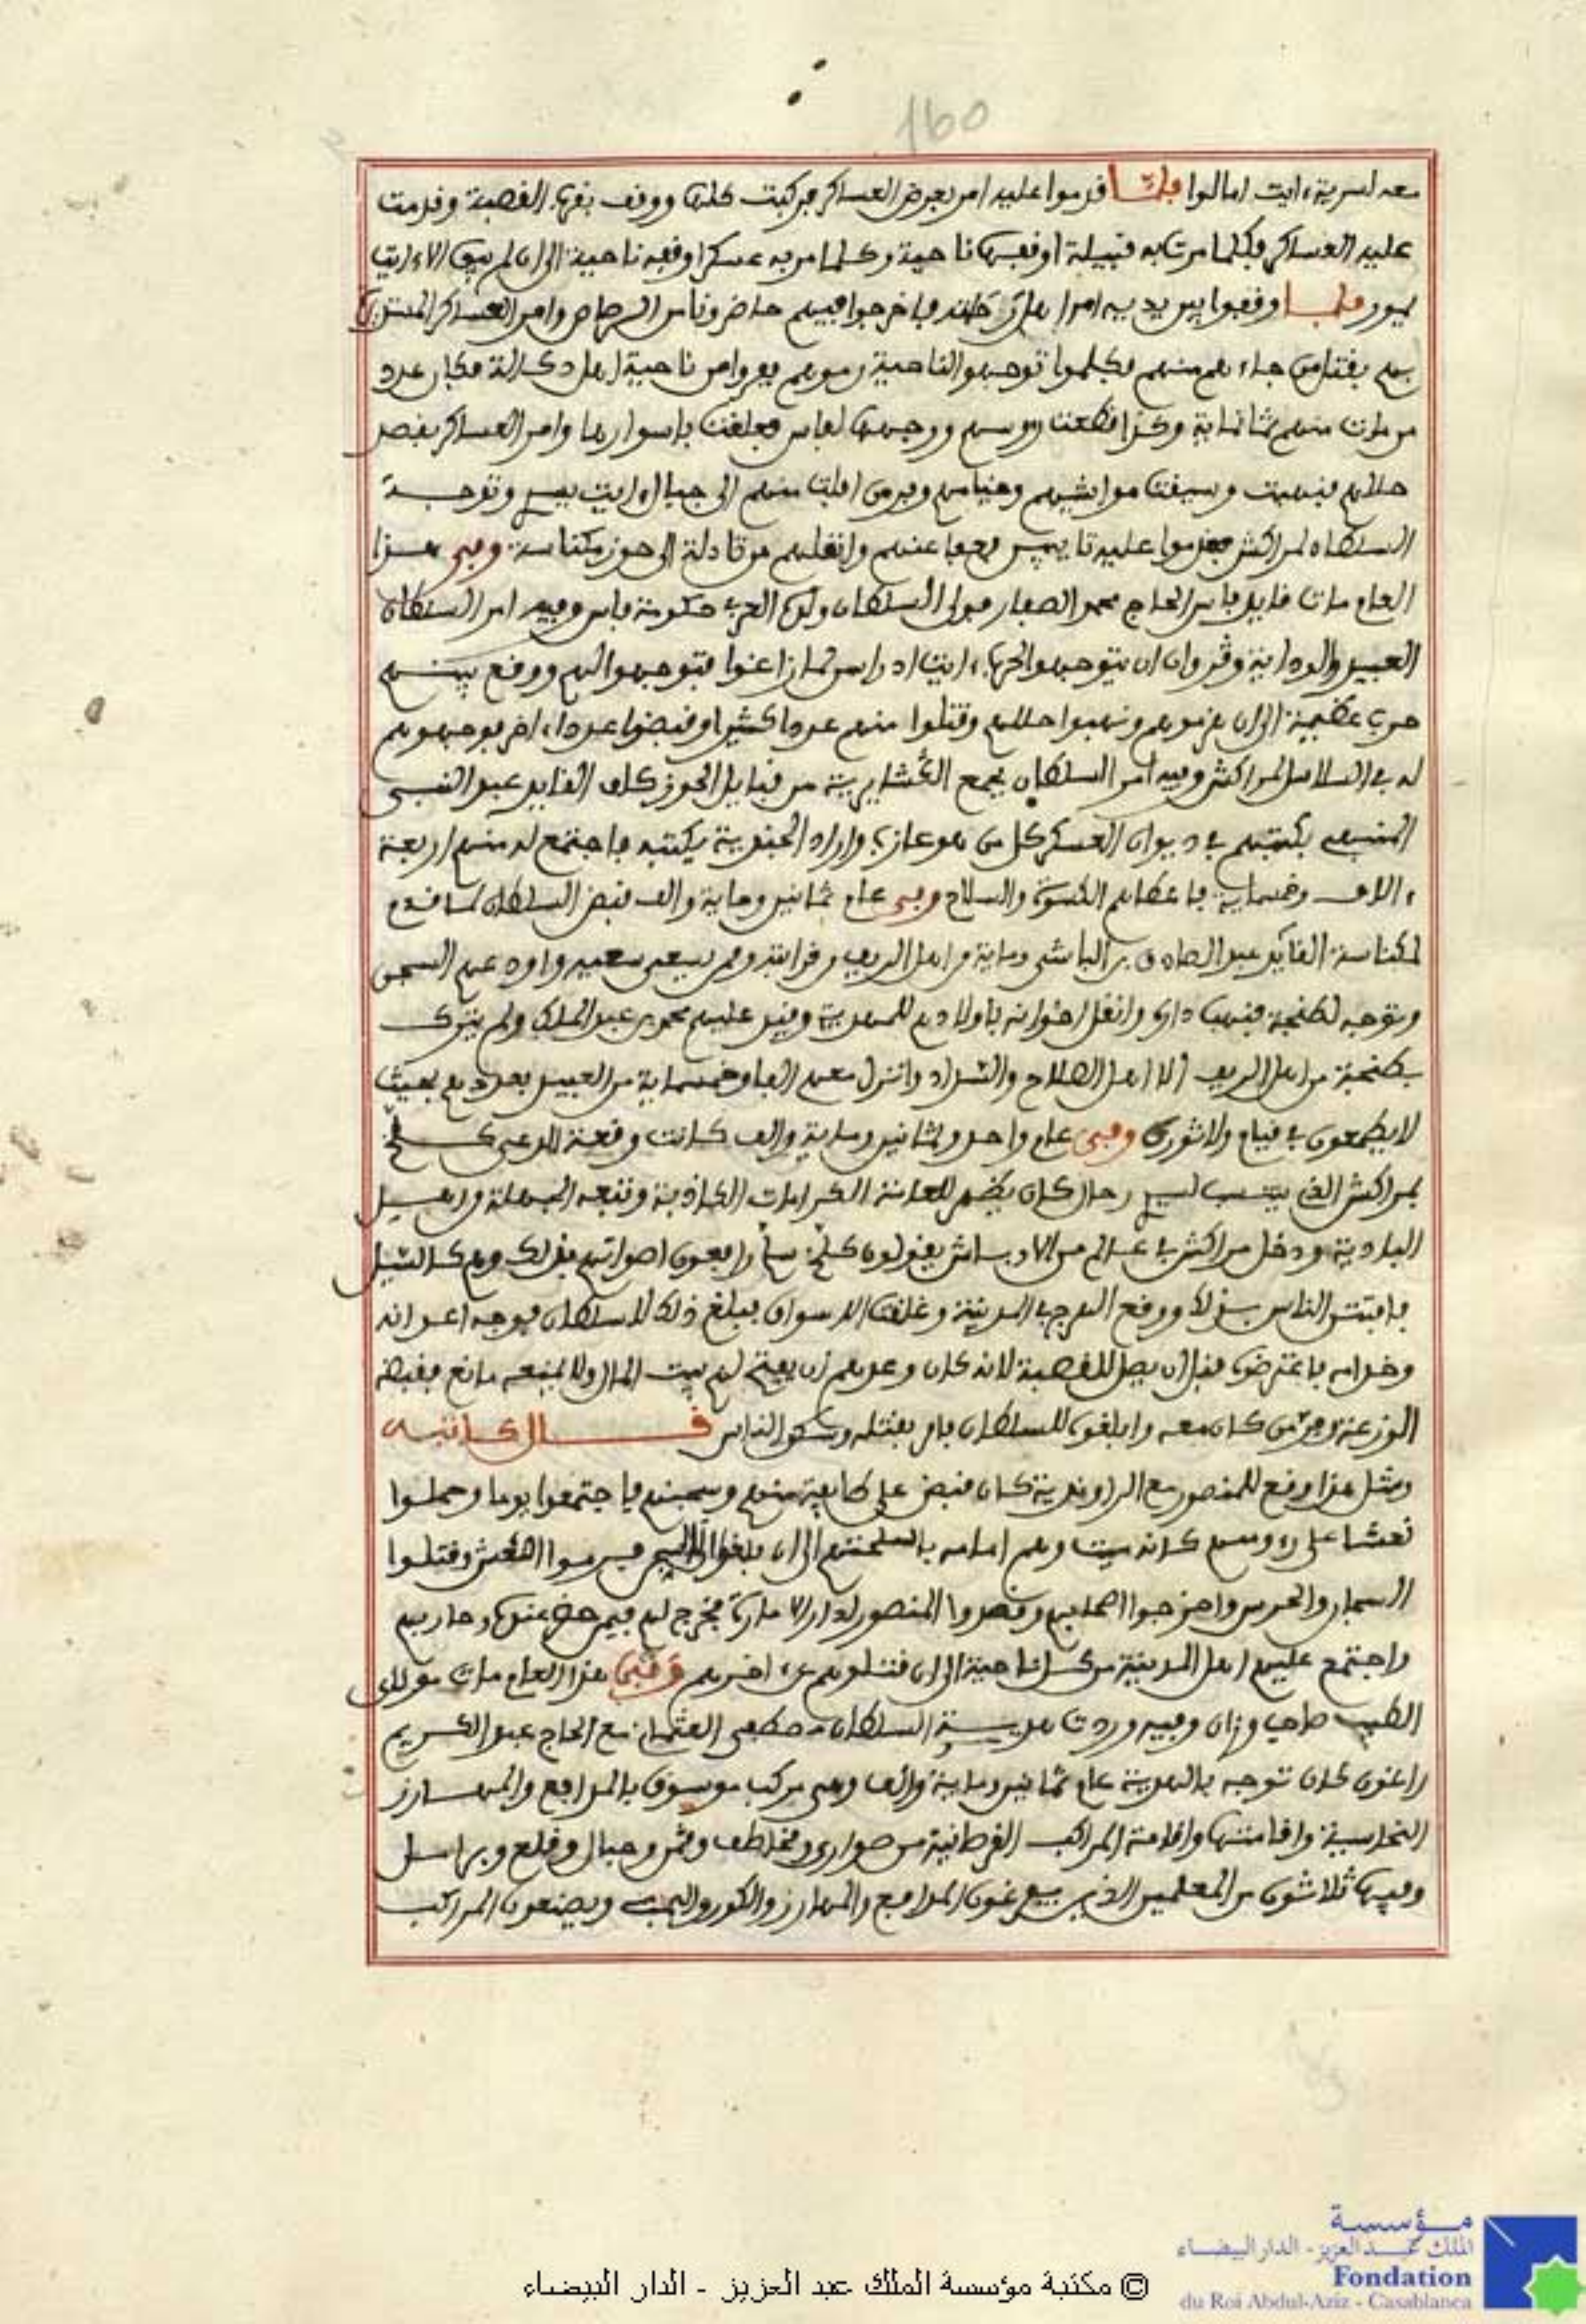 160
معه لسرية ايت امالوا فلما قدموا عليه امر بعرض العساكر فركبت كلها ووقف بفم القصبة وقدمت
عليه العساكر فكلما مرت به قبيلة اوقفها ناحية وكلما مر به عسكر اوقفه ناحية الى ان لم يبق الا ايت
يمور فلما وقفوا بين يديه امر فاخرجوا فيهم حاضرونا من الرصاص وامر العساكر
بهم بقتل من جاءهم منهم فكلما توجهوا لناحية رموهم ففروا من ناحية اهل دكالة فكان عدد
من مات منهم ثمانماية وكذا قطعت رءوسهم ووجهها لفاس فعلقت باسوارها وامر العساكر بقصد
حللهم فنهبت وسيقت مواشيهم وخيامهم وفر من افلت منهم الى جبال ايت يسر وتوجه
السلطان لمراكش فقدموا عليه تايبين فعفا عنهم وانقلهم من تادلة الى حوز مكناسة وفي هذا
العام مات قايد فاس الحاج محمد الصفار فولى السلطان ولد العربي حكومة فاس وفيه امر السلطان
العبيد والودايا وڭروان ان يتوجهوا لحرب ايت ادراسن لما زاغوا فتوجهوا اليهم ووقع بينهم
حرب عظيمة الى ان هزموهم ونهبوا حللهم وقتلوا منهم عددا كثيرا وقبضوا عددا اخر فوجهوهم
له في السلاسل لمراكش وفيه امر السلطان بجمع من قبايل الحوز كلف القايد عبد النبي
المنبهي بكتبهم في ديوان العسكر كل من هو عازب واراد الجندية يكتبه فاجتمع له منهم اربعة
ءالاف وخمسماية فاعطاهم الكسوة والسلاح وفي عام ثمانين وماية والف قبض السلطان لما قدم
لمكناسة القايد عبد الصادق بن الباشى وماية من اهل الريف من قرابته وممن يسعى سعيه واودعهم السجن
وتوجه لطنجة فنهب داره وانقل اخوانه باولادهم للمهدية وفيد عليهم محمد بن عبد الملك ولم يترك
بطنجة من اهل الريف الا اهل الصلاح والسداد وانزل معهم الفا وخمسماية من العبيد بحيث
لا يطمعون في قيام ولا ثورة وفي عام واحد وثمانين وماية والف كانت وقعة المدعي كلخ
بمراكش الذي ينتسب لسيدي رحال كان يظهر للعامة الكرامات الكاذبة وتتبعه الجهلة من اهل
البادية ودخل مراكش في عالم من الاوباش يقولون كلخ رافعون اصواتهم بذلك وهم كالسيل
فافتتن الناس بذلك ووقع الهرج في المدينة وغلقت الاسواق فبلغ ذلك للسلطان فوجه اعوانه
وخدامه فاعترضوه قبل ان يصل للقصبة لانه كان وعدهم ان يفتح لهم بيت المال ولا يمنعه مانع فقبضه
الوزعة وفر من كان معه وابلغوه للسلطان فامر بقتله وسكن الناس قال كاتبه
ومثل هذا وقع للمنصور مع الراوندية كان قبض على طايفة منهم وسجنهم فاجتمعوا يوما وحملوا
نعشا على رءوسهم كانه ميت وهم امامه باسلحتهم الى ان بلغوا السجن فرموا النعش وقتلوا
السجان والحرس واخرجوا اصحابهم وقصدوا المنصور لدار الامارة فخرج لهم فيمن حضر عنده وحاربهم
واجتمع عليهم اهل المدينة من كل ناحية الى ان قتلوهم عن اخرهم وفي هذا العام مات مولاي
الطيب صاحب وزان وفيه وردت هدية السلطان مصطفى العثماني مع الحاج عبد الكريم
راغون كان توجه بالهدية عام ثمانين وماية والف وهي مركب موسوق بالمدافع والمهارز
النحاسية واقامتها واقامة المراكب القرطانية من صواري ومخاطف وحبال وقلع وبراسل
وفيها ثلاثون من المعلمين الذين يفرغون المدافع والمهارز والكور والبنب ويصنعون المراكب
مؤسسة
الملك عبد العزيز - الدار البيضاء
Fondation
du Roi Abdul-Aziz - Casablanca
© مكتبة مؤسسة الملك عبد العزيز - الدار البيضاء